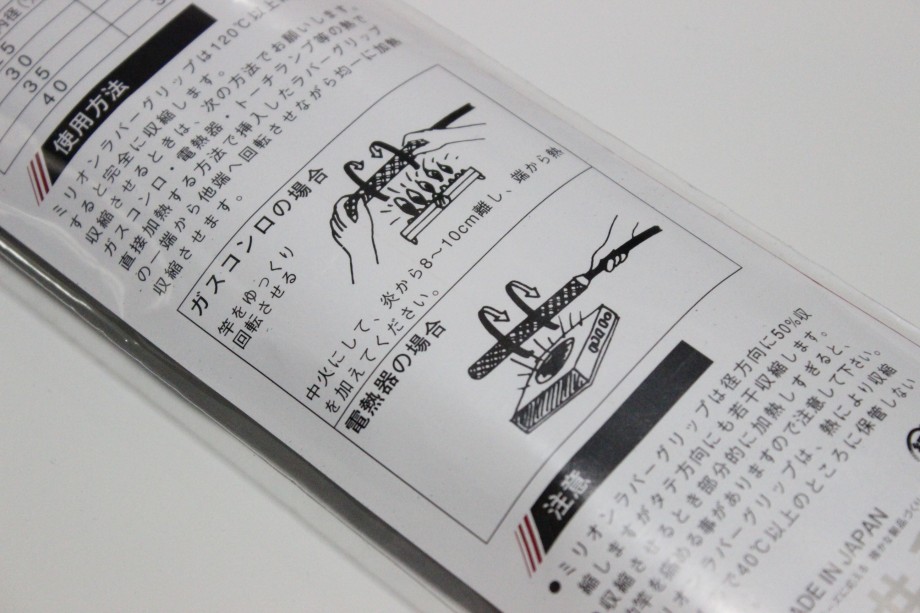 30
35
40
使用方法
ミリオンラバーグリップは120℃以上
すると完全に収縮します。
収縮させるときは、次の方法でお願いします。
ガスコンロ・電熱器・トーチランプ等の熱で
直接加熱する方法で挿入したラバーグリップ
の一端から他端へ回転させながら均一に加熱
収縮させます。
ガスコンロの場合
竿をゆっくり
回転させる
中火にして、炎から8〜10cm離し、端から熱
を加えてください。
電熱器の場合
注意
●ミリオンラバーグリップは径方向に50%収
縮しますがタテ方向にも若干収縮します。
収縮させるとき部分的に加熱しすぎると、
竿を痛める事がありますので注意して下さい。
オンラバーグリップは、熱により収縮
で40℃以上のところに保管しない
ADE IN JAPAN